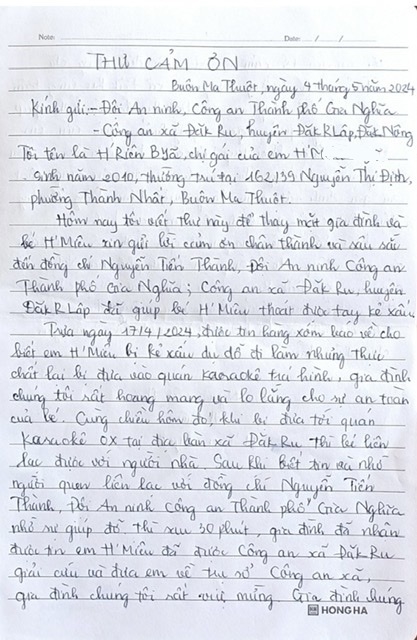 Note: Date: / /
THƯ CẢM ƠN
Buôn Ma Thuột, ngày 4 tháng 5 năm 2024
Kính gửi: - Đội An ninh, Công an Thành phố Gia Nghĩa
- Công an xã Đăk Ru, huyện Đăk R Lấp, Đăk Nông
Tôi tên là H'Riên Byă, chị gái của em H'M. ...
Sinh năm 2010, thường trú tại 162/39 Nguyễn Thị Định,
phường Thành Nhất, Buôn Ma Thuột.
Hôm nay tôi viết thư này để thay mặt gia đình và
bé H'Miêu xin gửi lời cảm ơn chân thành và sâu sắc
đến đồng chí Nguyễn Tiến Thành, Đội An ninh Công an
Thành phố Gia Nghĩa; Công an xã Đăk Ru, huyện
Đăk R Lấp đã giúp bé H'Miêu thoát được tay kẻ xấu.
Trưa ngày 17/4/2024, được tin hàng xóm báo về cho
biết em H'Miêu bị kẻ xấu dụ dỗ đi làm nhưng thực
chất lại bị đưa vào quán karaoke trá hình, gia đình
chúng tôi rất hoang mang và lo lắng cho sự an toàn
của bé. Cũng chiều hôm đó, khi bị đưa tới quán
Karaokê OX tại địa bàn xã Đăk Ru thì bé liên
lạc được với người nhà. Sau khi biết tin và nhờ
người quen liên lạc với đồng chí Nguyễn Tiến
Thành, Đội An ninh Công an Thành phố Gia Nghĩa
nhờ sự giúp đỡ thì sau 30 phút, gia đình đã nhận
được tin em H'Miêu đã được Công an xã Đăk Ru
giải cứu và đưa em về trụ sở Công an xã,
gia đình chúng tôi rất vui mừng. Gia đình chúng
HONG HA